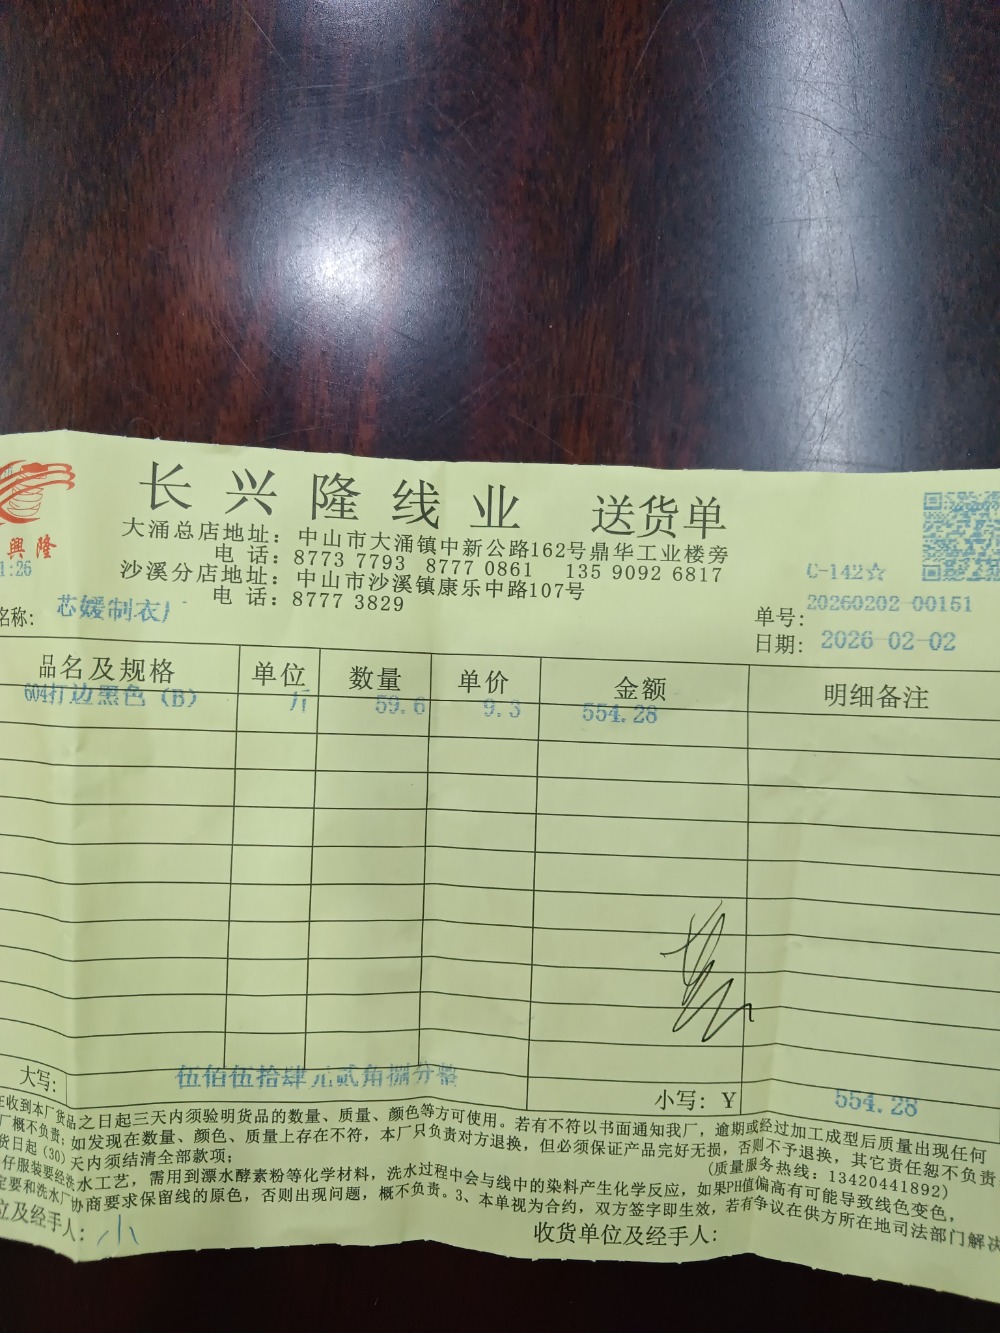 长兴隆线业 送货单
興隆
大涌总店地址：中山市大涌镇中新公路162号鼎华工业楼旁
电 话：8773 7793 8777 0861 135 9092 6817
沙溪分店地址：中山市沙溪镇康乐中路107号
电 话：8777 3829
1:26
C-142☆
名称：芯媛制衣厂
单号：20260202-00151
日期：2026-02-02
品名及规格 单位 数量 单价 金额 明细备注
604打边黑色（B） 斤 59.6 9.3 554.28
大写：伍佰伍拾肆元贰角捌分整
小写：Y 554.28
收到本厂货品之日起三天内须验明货品的数量、质量、颜色等方可使用。若有不符以书面通知我厂，逾期或经过加工成型后质量出现任何
厂概不负责；如发现在数量、颜色、质量上存在不符，本厂只负责对方退换，但必须保证产品完好无损，否则不予退换，其它责任恕不负责
货日起（30）天内须结清全部款项；
（质量服务热线：13420441892）
仔服装要经洗水工艺，需用到漂水酵素粉等化学材料，洗水过程中会与线中的染料产生化学反应，如果PH值偏高有可能导致线色变色，
定要和洗水厂协商要求保留线的原色，否则出现问题，概不负责。3、本单视为合约，双方签字即生效，若有争议在供方所在地司法部门解决
位及经手人：小
收货单位及经手人：